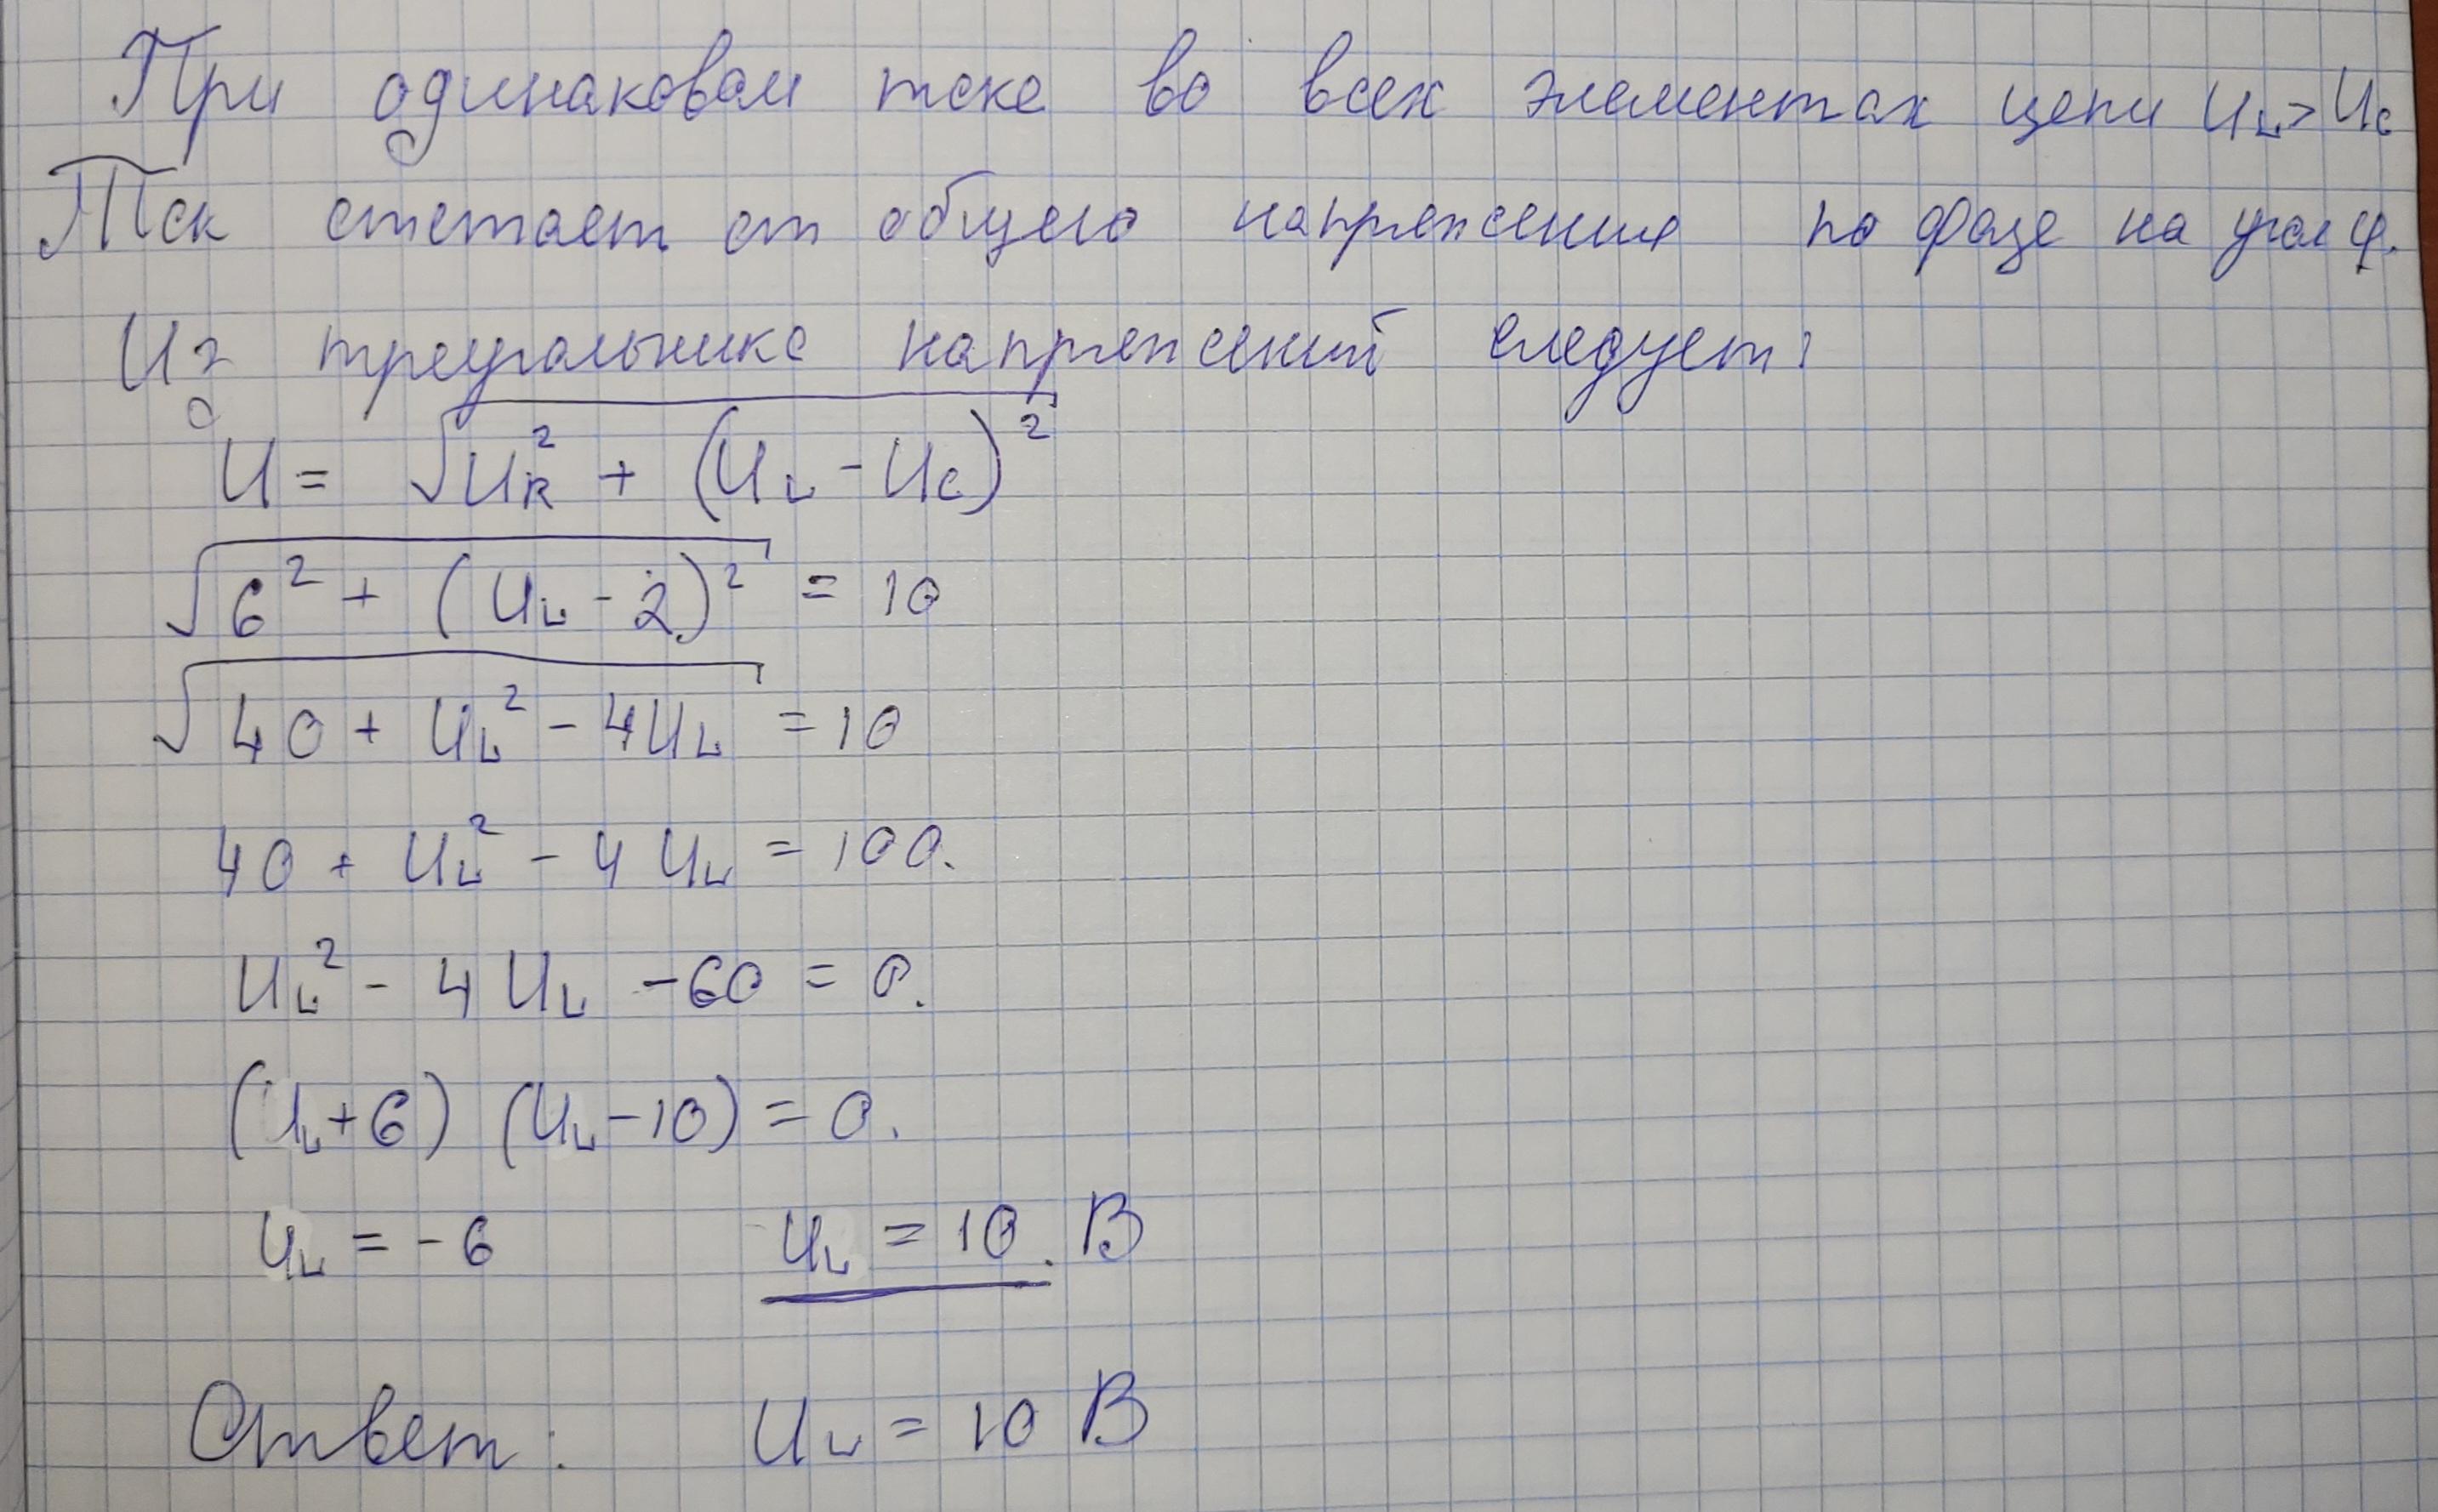 При одинаковом токе во всех элементах цепи U_L > U_C
Ток отстает от общего напряжения по фазе на угол φ.
Из треугольника напряжений следует:
U = √(U_R² + (U_L - U_C)²)
√(6² + (U_L - 2)²) = 10
√(40 + U_L² - 4U_L) = 10
40 + U_L² - 4U_L = 100.
U_L² - 4U_L - 60 = 0.
(U_L + 6) (U_L - 10) = 0.
U_L = -6 U_L = 10. В
Ответ: U_L = 10 В